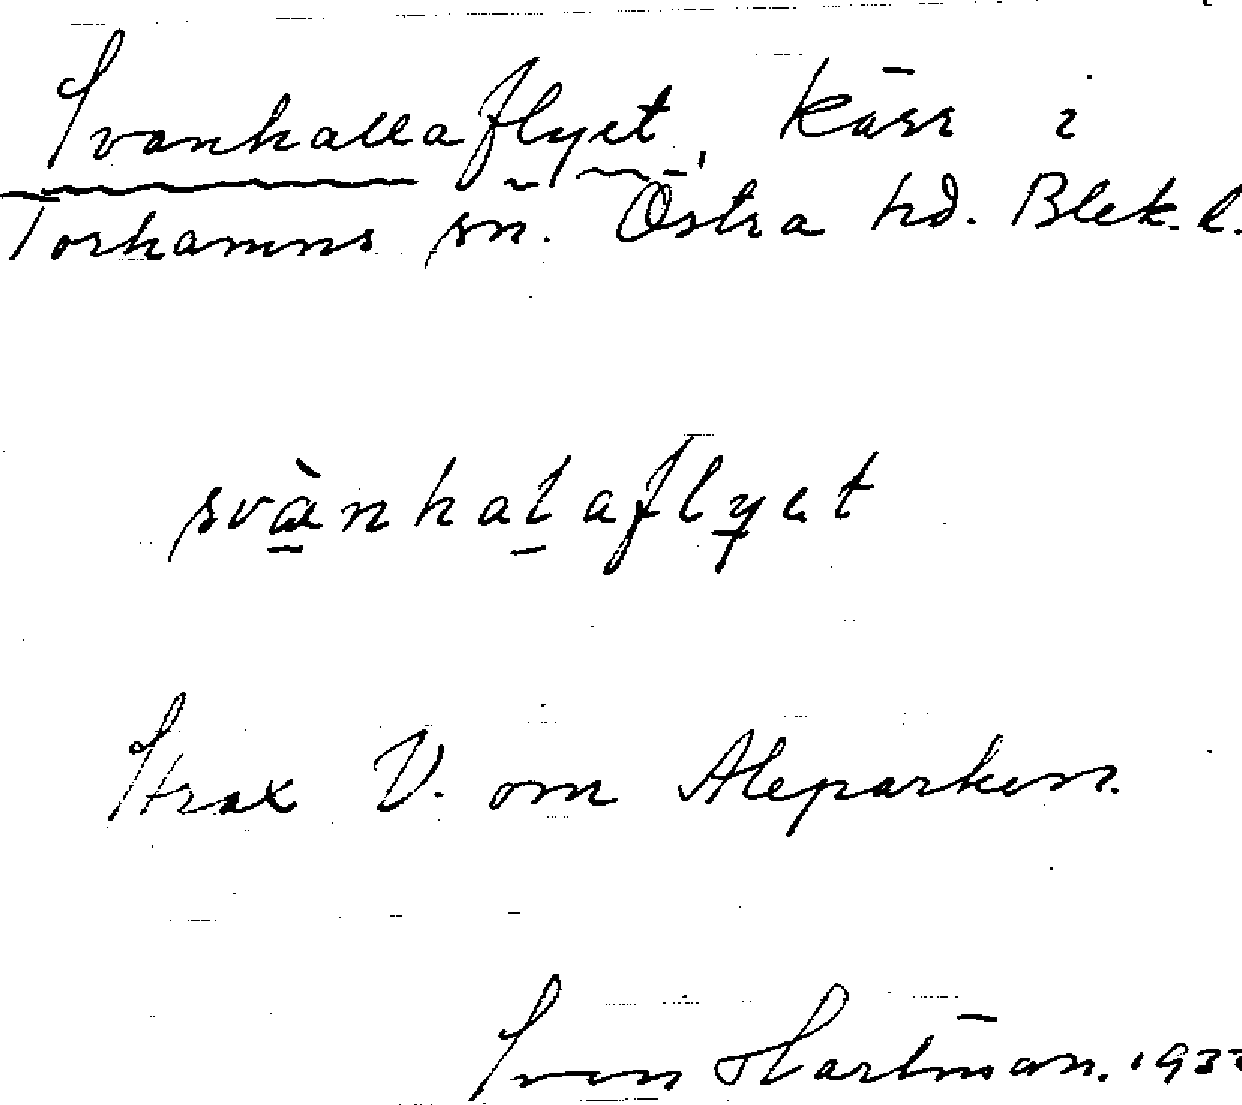 Svanhallaflyet, kärr i
Torhamns sn. Östra hd. Blek. l.
svànhalaflyet
Strax V. om Aleparken.
Sven Hartman. 1933